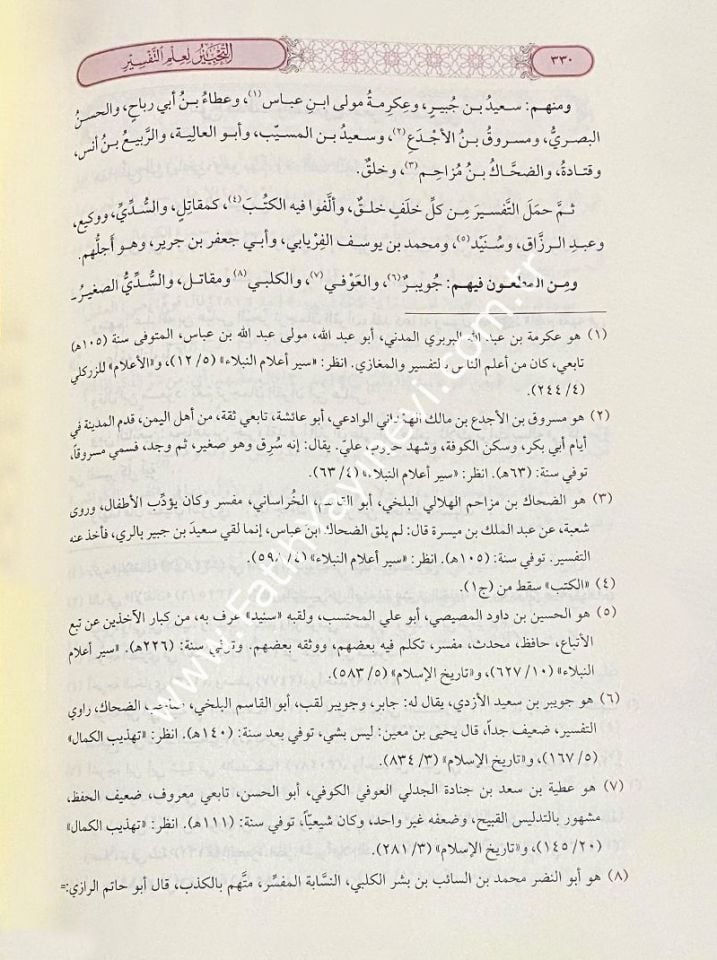 ٣٣٠
التحبير لعلم التفسير
ومنهم: سعيدُ بن جُبيرٍ، وعِكرمةُ مولى ابنِ عباس(١)، وعطاءُ بنُ أبي رباحٍ، والحسنُ
البصريُّ، ومسروقُ بنُ الأجْدَعِ(٢)، وسعيدُ بن المسيّب، وأبو العالية، والرَّبيعُ بنُ أنس،
وقتادةُ، والضحّاكُ بنُ مُزاحِمٍ(٣)، وخلقٌ.
ثمَّ حملَ التَّفسيرَ مِن كلِّ خلَفٍ خلقٌ، وألَّفوا فيه الكتُبَ(٤)، كمقاتِلٍ، والسُّدِّيِّ، ووكيع،
وعبدِ الرزَّاق، وسُنَيْد(٥)، ومحمد بن يوسف الفِريابي، وأبي جعفر بن جرير، وهو أجلُّهم.
ومِن المطعونِ فيهم: جُويبرٌ(٦)، والعَوْفي(٧)، والكلبي(٨) ومقاتل، والسُّدِّيُّ الصغيرُ ـ
(١) هو عكرمة بن عبد الله البربري المدني، أبو عبد الله، مولى عبد الله بن عباس، المتوفى سنة (١٠٥هـ)
تابعي، كان من أعلم الناس بالتفسير والمغازي. انظر: «سير أعلام النبلاء» (٥/ ١٢)، و«الأعلام» للزركلي
(٤/ ٢٤٤).
(٢) هو مسروق بن الأجدع بن مالك الهمْداني الوادعي، أبو عائشة، تابعي ثقة، من أهل اليمن، قدم المدينة في
أيام أبي بكر، وسكن الكوفة، وشهد حروب عليّ. يقال: إنه سُرِق وهو صغير، ثم وجد، فسمي مسروقاً،
توفي سنة: (٦٣هـ). انظر: «سير أعلام النبلاء» (٤/ ٦٣).
(٣) هو الضحاك بن مزاحم الهلالي البلخي، أبو القاسم، الخُراساني، مفسر وكان يؤدِّب الأطفال، وروى
شعبة، عن عبد الملك بن ميسرة قال: لم يلق الضحاك ابنَ عباس، إنما لقي سعيدَ بن جبير بالري، فأخذ عنه
التفسير. توفي سنة: (١٠٥هـ). انظر: «سير أعلام النبلاء» (٤/ ٥٩٨).
(٤) «الكتب» سقط من (ج١).
(٥) هو الحسين بن داود المصيصي، أبو علي المحتسب، ولقبه «سنيد» عرف به، من كبار الآخذين عن تبع
الأتباع، حافظ، محدث، مفسر، تكلم فيه بعضهم، ووثقه بعضهم. وتوفي سنة: (٢٢٦هـ). «سير أعلام
النبلاء» (١٠/ ٦٢٧)، و«تاريخ الإسلام» (٥/ ٥٨٣).
(٦) هو جويبر بن سعيد الأزدي، يقال له: جابر، وجويبر لقب، أبو القاسم البلخي، صاحب الضحاك، راوي
التفسير، ضعيف جداً، قال يحيى بن معين: ليس بشي، توفي بعد سنة: (١٤٠هـ). انظر: «تهذيب الكمال»
(٥/ ١٦٧)، و«تاريخ الإسلام» (٣/ ٨٣٤).
(٧) هو عطية بن سعد بن جنادة الجدلي العوفي الكوفي، أبو الحسن، تابعي معروف، ضعيف الحفظ،
مشهور بالتدليس القبيح، وضعفه غير واحد، وكان شيعياً، توفي سنة: (١١١هـ). انظر: «تهذيب الكمال»
(٢٠/ ١٤٥)، و«تاريخ الإسلام» (٣/ ٢٨١).
(٨) هو أبو النضر محمد بن السائب بن بشر الكلبي، النسَّابة المفسِّر، متَّهم بالكذب، قال أبو حاتم الرازي: =
www.Fatihyayinevi.com.tr